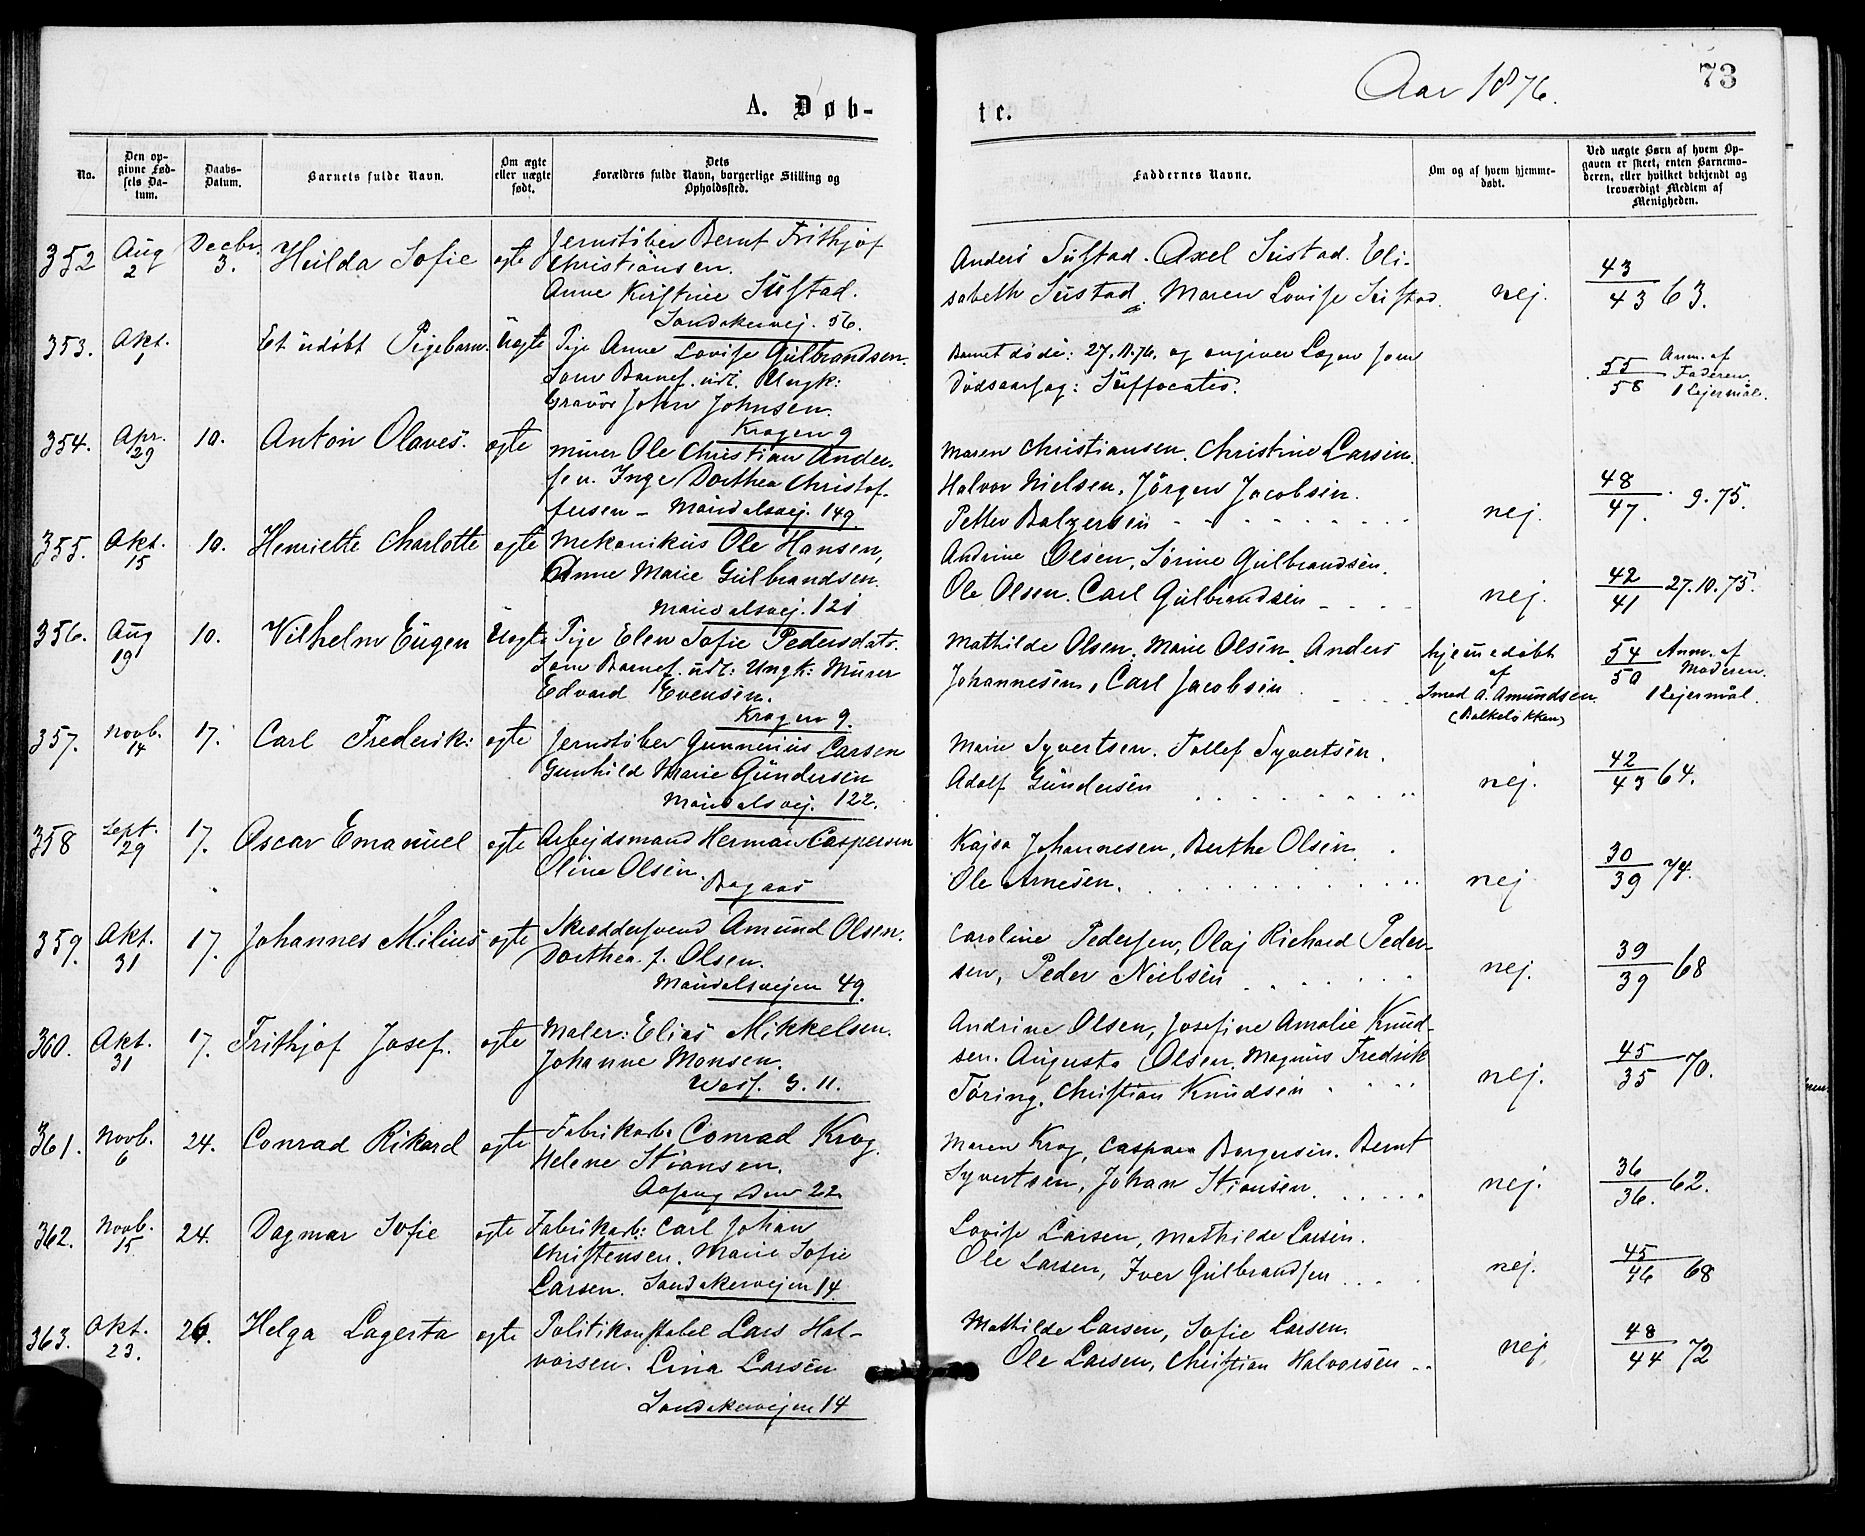 Aar 1876.
73
A. Døb-
te.
No.
Den op-
givne Fød-
sels Da-
tum.
Daabs-
Datum.
Barnets fulde Navn.
Om ægte
eller uægte
født.
Dets
Forældres fulde Navn, borgerlige Stilling og
Opholdssted.
Faddernes Navne.
Om og af hvem hjemme-
døbt.
Ved uægte Børn af hvem Op-
gaven er skeet, enten Barnemo-
deren, eller hvilket bekjendt og
troværdigt Medlem af
Menigheden.
352 Aug 2 Decbr. 3. Hilda Sofie ægte
Jernstøber Bernt Frithjof
Christiansen.
Anne Kirstine Sustad.
Sandakervej. 56.
Anders Sustad. Axel Sustad. Eli-
sabeth Sustad, Maren Lovise Sustad. nej. 43/43 63.
353. Okt. 1 Et udøbt Pigebarn. Uægte
Pige Anne Lovise Gulbrandsen.
Som Barnef. udl. Ungk:
Gravör John Johnsen.
Krogen 9
Barnet døde: 27.11.76. og angiver Lægen som
Dødsaarsag: Suffocatio.
55/58 Anm. af
Faderen
1 Lejermål.
354. Apr. 29 10. Anton Olaves. ægte
Murer Ole Christian Ander-
sen. Inge Dorthea Christof-
fersen - Maridalsvej. 149.
Maren Christiansen, Christine Larsen.
Halvor Nielsen, Jörgen Jacobsen.
Petter Balzersen nej. 48/47. 9.75.
355. Okt. 15 10. Henriette Charlotte ægte
Mekanikus Ole Hansen,
Anne Marie Gulbrandsen.
Maridalsvej. 121
Andrine Olsen, Sörine Gulbrandsen.
Ole Olsen. Carl Gulbrandsen nej. 42/41 27.10.75.
356. Aug 19 10. Vilhelm Eugen Uægte
Pige Elen Sofie Pedersdatr.
Som Barnef. udl: Ungk: Murer
Edvard Evensen.
Krogen 9.
Mathilde Olsen, Marie Olsen, Anders
Johannesen, Carl Jacobsen
hjemmedøbt
af
Smed A. Amundsen
(Balkeløkken)
54/50 Anm. af
Moderen.
1 Lejermål.
357. Novb. 14 17. Carl Frederik: ægte
Jernstøber Gunnerius Larsen
Gunhild Marie Gundersen
Maridalsvej. 122.
Marie Syvertsen. Tollef Syvertsen.
Adolf Gundersen nej. 42/43 64.
358 Sept. 29 17. Oscar Emanuel ægte
Arbejdsmand Herman Caspersen
Oline Olsen.
Bagaas
Kajsa Johannesen, Berthe Olsen
Ole Arnesen. nej 30/39 74.
359. Okt. 31 17. Johannes Milius ægte
Skreddersvend Amund Olsen.
Dorthea f. Olsen.
Maridalsvejen 49.
Caroline Pedersen, Olaj Richard Peder-
sen, Peder Nielsen nej. 39/39 68
360. Okt. 31 17. Frithjof Josef. ægte
Maler: Elias Mikkelsen.
Johanne Monsen.
Wasf. 3.11.
Andrine Olsen, Josefine Amalie Knud-
sen. Augusta Olsen, Magnus Fredrik
Töring, Christian Knudsen nej. 45/35 70.
361. Novb. 6 24. Conrad Rikard ægte
Fabrikarb. Conrad Krog.
Helene Stiansen.
Aasengaden 22
Maren Krog, Caspara Borgersen. Bernt
Syvertsen, Johan Stiansen. nej. 36/36. 62.
362. Novb. 15 24. Dagmar Sofie ægte
Fabrikarb: Carl Johan
Christensen. Marie Sofie
Larsen. Sandakervejen 14.
Lovise Larsen, Mathilde Larsen.
Ole Larsen, Iver Gulbrandsen nej. 45/46 68
363. Okt. 23. 26. Helga Lagerta ægte
Politikonstabel Lars Hal-
vorsen. Lina Larsen
Sandakervejen 14
Mathilde Larsen, Sofie Larsen.
Ole Larsen, Christian Halvorsen nej. 48/44 72